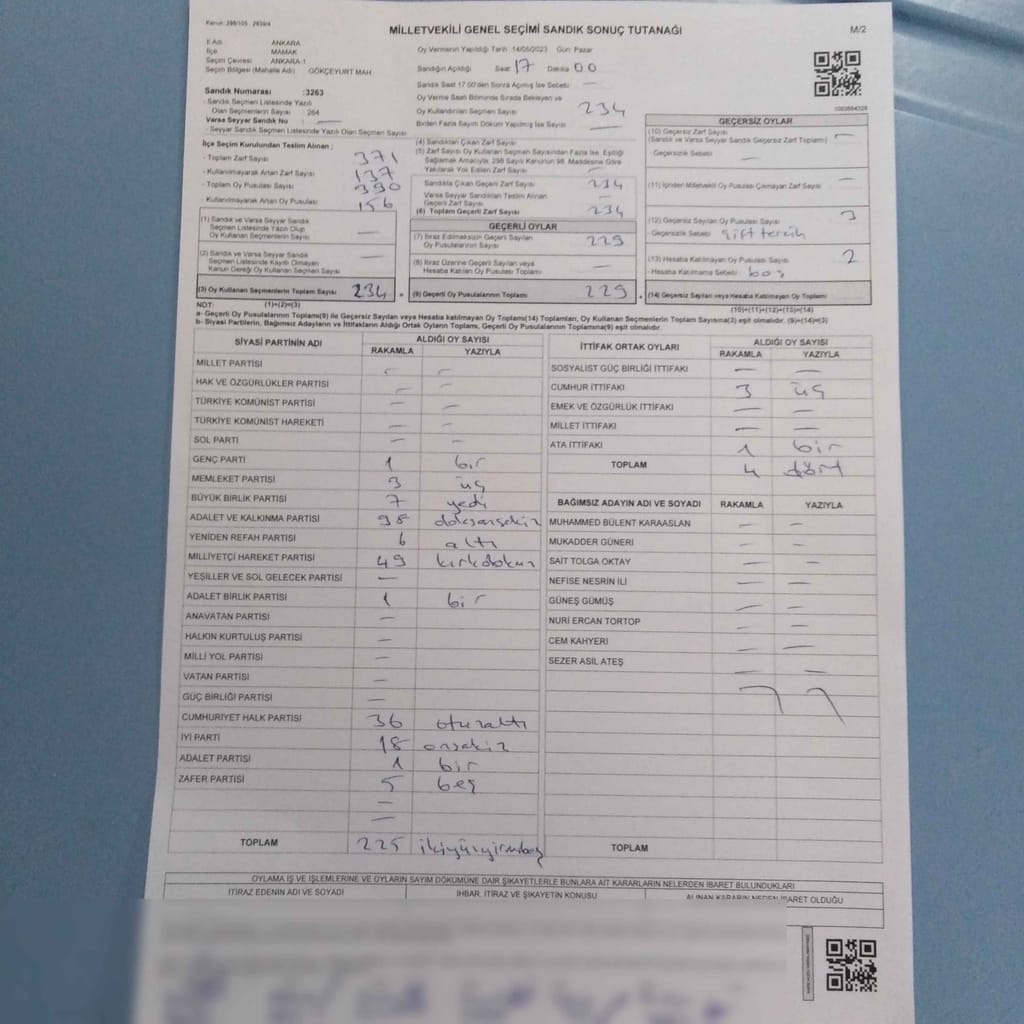 Kanun: 298/105 , 2839/4
MİLLETVEKİLİ GENEL SEÇİMİ SANDIK SONUÇ TUTANAĞI
M/2
İl Adı ANKARA
İlçe MAMAK
Seçim Çevresi ANKARA-1
Seçim Bölgesi (Mahalle Adı) GÖKÇEYURT MAH
Sandık Numarası :3263
- Sandık Seçmen Listesinde Yazılı
Olan Seçmenlerin Sayısı 264
Varsa Seyyar Sandık No : —
- Seyyar Sandık Seçmen Listesinde Yazılı Olan Seçmen Sayısı
İlçe Seçim Kurulundan Teslim Alınan ;
- Toplam Zarf Sayısı 371
- Kullanılmayarak Artan Zarf Sayısı 137
- Toplam Oy Pusulası Sayısı 390
- Kullanılmayarak Artan Oy Pusulası 156
(1) Sandık ve Varsa Seyyar Sandık
Seçmen Listesinde Yazılı Olup
Oy Kullanan Seçmenlerin Sayısı —
(2) Sandık ve Varsa Seyyar Sandık
Seçmen Listesinde Kayıtlı Olmayan
Kanun Gereği Oy Kullanan Seçmen Sayısı —
(3) Oy Kullanan Seçmenlerin Toplam Sayısı 234
Oy Vermenin Yapıldığı Tarih :14/05/2023 Gün: Pazar
Sandığın Açıldığı Saat 17 Dakika 00
Sandık Saat 17:00'den Sonra Açılmış İse Sebebi —
Oy Verme Saati Bitiminde Sırada Bekleyen ve
Oy Kullandırılan Seçmen Sayısı 234
Birden Fazla Sayım Döküm Yapılmış İse Sayısı —
(4) Sandıktan Çıkan Zarf Sayısı
(5) Zarf Sayısı Oy Kullanan Seçmen Sayısından Fazla İse, Eşitliği
Sağlamak Amacıyla, 298 Sayılı Kanunun 98. Maddesine Göre
Yakılarak Yok Edilen Zarf Sayısı —
Sandıkta Çıkan Geçerli Zarf Sayısı 234
Varsa Seyyar Sandıktan Teslim Alınan
Geçerli Zarf Sayısı —
(6) Toplam Geçerli Zarf Sayısı 234
GEÇERLİ OYLAR
(7) İtiraz Edilmeksizin Geçerli Sayılan
Oy Pusulalarının Sayısı 229
(8) İtiraz Üzerine Geçerli Sayılan veya
Hesaba Katılan Oy Pusulası Toplamı —
(9) Geçerli Oy Pusulalarının Toplamı 229
1083684328
GEÇERSİZ OYLAR
(10) Geçersiz Zarf Sayısı
(Sandık ve Varsa Seyyar Sandık Geçersiz Zarf Toplamı) —
- Geçersizlik Sebebi —
(11) İçinden Milletvekili Oy Pusulası Çıkmayan Zarf Sayısı —
(12) Geçersiz Sayılan Oy Pusulası Sayısı 3
- Geçersizlik Sebebi çift tercih
(13) Hesaba Katılmayan Oy Pusulası Sayısı 2
- Hesaba Katılmama Sebebi boş
(14) Geçersiz Sayılan veya Hesaba Katılmayan Oy Toplamı
NOT: (1)+(2)=(3) (10)+(11)+(12)+(13)=(14)
a- Geçerli Oy Pusulalarının Toplamı(9) ile Geçersiz Sayılan veya Hesaba katılmayan Oy Toplamı(14) Toplamları, Oy Kullanan Seçmenlerin Toplam Sayısına(3) eşit olmalıdır. (9)+(14)=(3)
b- Siyasi Partilerin, Bağımsız Adayların ve İttifakların Aldığı Ortak Oyların Toplamı, Geçerli Oy Pusulalarının Toplamına(9) eşit olmalıdır.
SİYASİ PARTİNİN ADI ALDIĞI OY SAYISI
RAKAMLA YAZIYLA
MİLLET PARTİSİ — —
HAK VE ÖZGÜRLÜKLER PARTİSİ — —
TÜRKİYE KOMÜNİST PARTİSİ — —
TÜRKİYE KOMÜNİST HAREKETİ — —
SOL PARTİ — —
GENÇ PARTİ 1 bir
MEMLEKET PARTİSİ 3 üç
BÜYÜK BİRLİK PARTİSİ 7 yedi
ADALET VE KALKINMA PARTİSİ 98 doksansekiz
YENİDEN REFAH PARTİSİ 6 altı
MİLLİYETÇİ HAREKET PARTİSİ 49 kırkdokuz
YEŞİLLER VE SOL GELECEK PARTİSİ —
ADALET BİRLİK PARTİSİ 1 bir
ANAVATAN PARTİSİ —
HALKIN KURTULUŞ PARTİSİ —
MİLLİ YOL PARTİSİ —
VATAN PARTİSİ —
GÜÇ BİRLİĞİ PARTİSİ —
CUMHURİYET HALK PARTİSİ 36 otuzaltı
İYİ PARTİ 18 onsekiz
ADALET PARTİSİ 1 bir
ZAFER PARTİSİ 5 beş
—
—
TOPLAM 225 ikiyüzyirmibeş
İTTİFAK ORTAK OYLARI ALDIĞI OY SAYISI
RAKAMLA YAZIYLA
SOSYALİST GÜÇ BİRLİĞİ İTTİFAKI — —
CUMHUR İTTİFAKI 3 üç
EMEK VE ÖZGÜRLÜK İTTİFAKI — —
MİLLET İTTİFAKI — —
ATA İTTİFAKI 1 bir
TOPLAM 4 dört
BAĞIMSIZ ADAYIN ADI VE SOYADI RAKAMLA YAZIYLA
MUHAMMED BÜLENT KARAASLAN — —
MUKADDER GÜNERİ — —
SAİT TOLGA OKTAY — —
NEFİSE NESRİN İLİ — —
GÜNEŞ GÜMÜŞ — —
NURİ ERCAN TORTOP — —
CEM KAHYERİ — —
SEZER ASIL ATEŞ — —
TOPLAM
OYLAMA İŞ VE İŞLEMLERİNE VE OYLARIN SAYIM DÖKÜMÜNE DAİR ŞİKAYETLERLE BUNLARA AİT KARARLARIN NELERDEN İBARET BULUNDUKLARI
İTİRAZ EDENİN ADI VE SOYADI İHBAR, İTİRAZ VE ŞİKAYETİN KONUSU ALINAN KARARIN NEDEN İBARET OLDUĞU